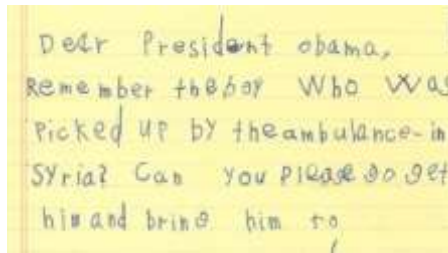 Dear President obama,
Remember the boy Who Was
Picked up by the ambulance-in
Syria? Can you please go get
him and bring him to